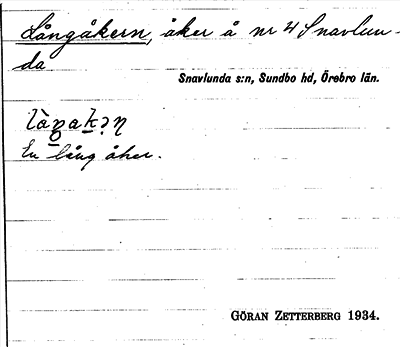 Långåkern, åker å nr 4 Snavlun-
da
Snavlunda s:n, Sundbo hd, Örebro län.
En lång åker.
GÖRAN ZETTERBERG 1934.